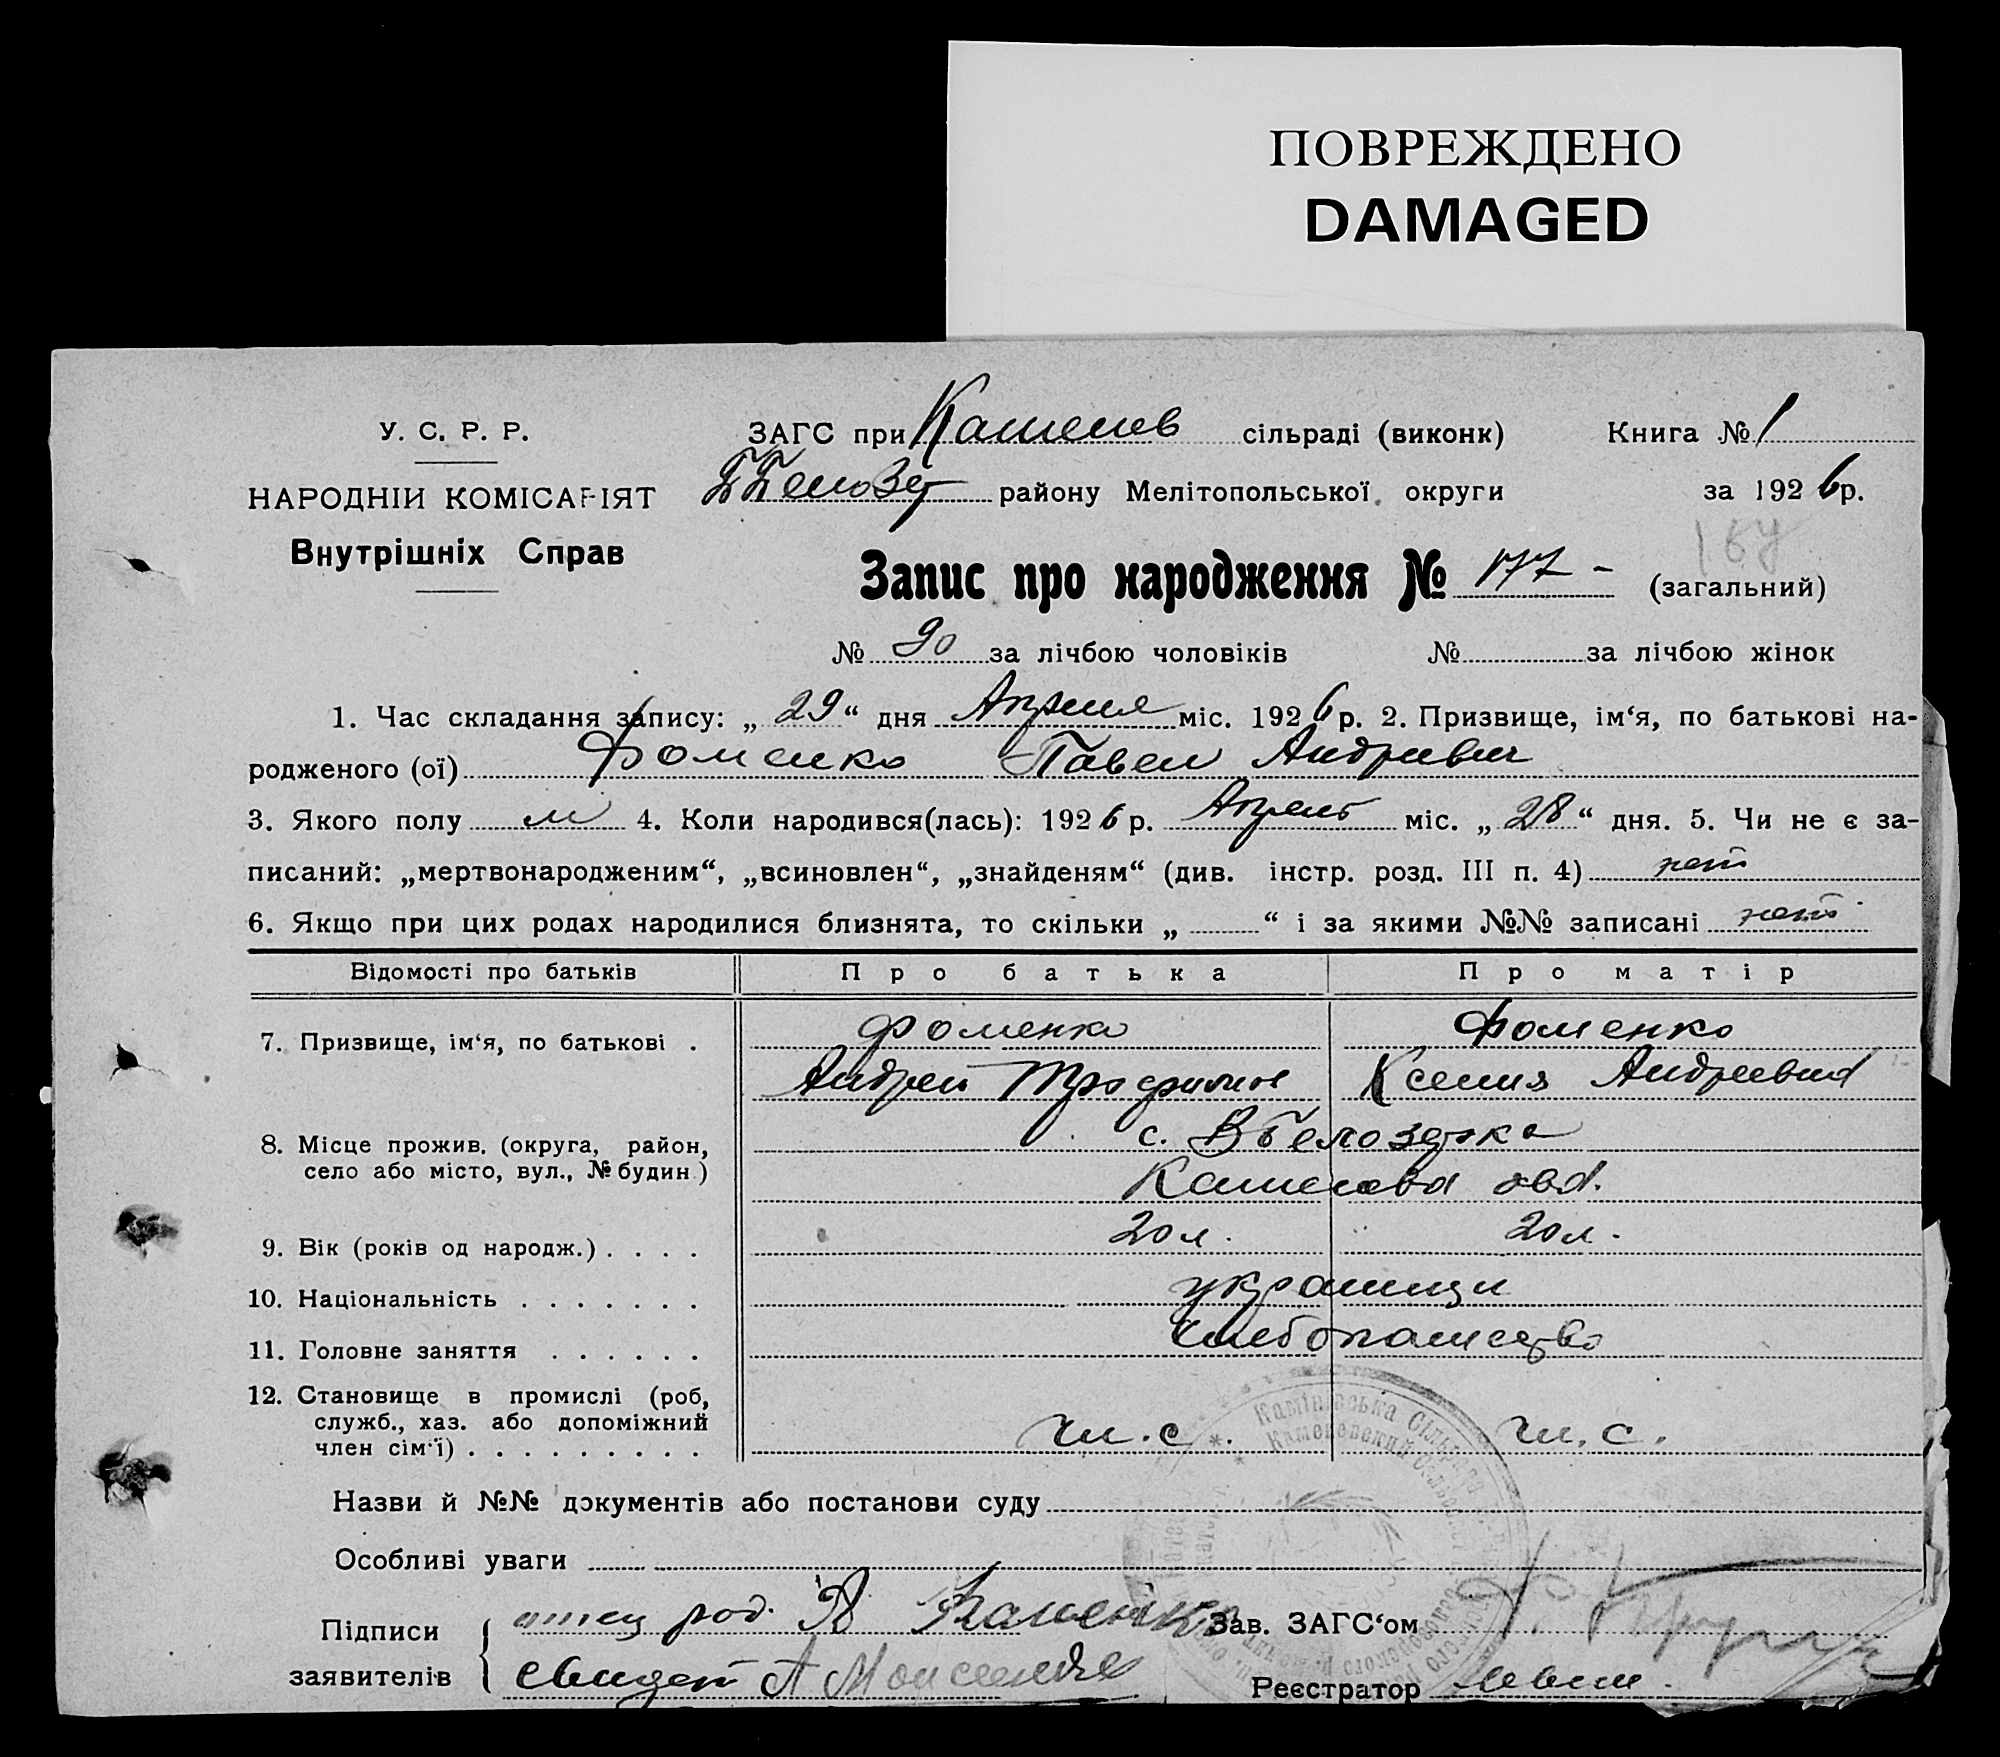 ПОВРЕЖДЕНО
DAMAGED
У. С. Р. Р.
НАРОДНІЙ КОМІСАРІЯТ
Внутрішніх Справ
ЗАГС при Каменев сільраді (виконк)
Книга № 1
Ббелозер району Мелітопольської округи
за 1926 р.
Запис про народження № 177 - (загальний)
№ 90 за лічбою чоловіків № за лічбою жінок
1. Час складання запису: „ 29 “ дня Апреля міс. 1926 р. 2. Призвище, ім‘я, по батькові на-
родженого (ої) Фоменко Павел Андреевич
3. Якого полу м 4. Коли народився(лась): 1926 р. Апрель міс. „ 28 “ дня. 5. Чи не є за-
писаний: „мертвонародженим“, „всиновлен“, „знайденям“ (див. інстр. розд. III п. 4) нет
6. Якщо при цих родах народилися близнята, то скільки „ “ і за якими №№ записані нет
Відомості про батьків Про батька Про матір
7. Призвище, ім‘я, по батькові . Фоменко Фоменко
Андрей Трофимов Ксения Андреевна
8. Місце прожив. (округа, район, с. ВБелозерка
село або місто, вул., № будин.) Каменова
9. Вік (років од народж.) . . . . 20 л. 20 л.
10. Національність . . . . . . . украинци
11. Головне заняття . . . . . . хлебопашество
12. Становище в промислі (роб,
служб., хаз. або допоміжний
член сім‘ї) . . . . . . . . . чл. с. чл. с.
Камінівська Сільрада
Каменевский
Назви й №№ документів або постанови суду
Особливі уваги
Підписи
заявителів
отец род. А Фаменко
свидет А Моисеенко
Зав. ЗАГС‘ом
Реєстратор